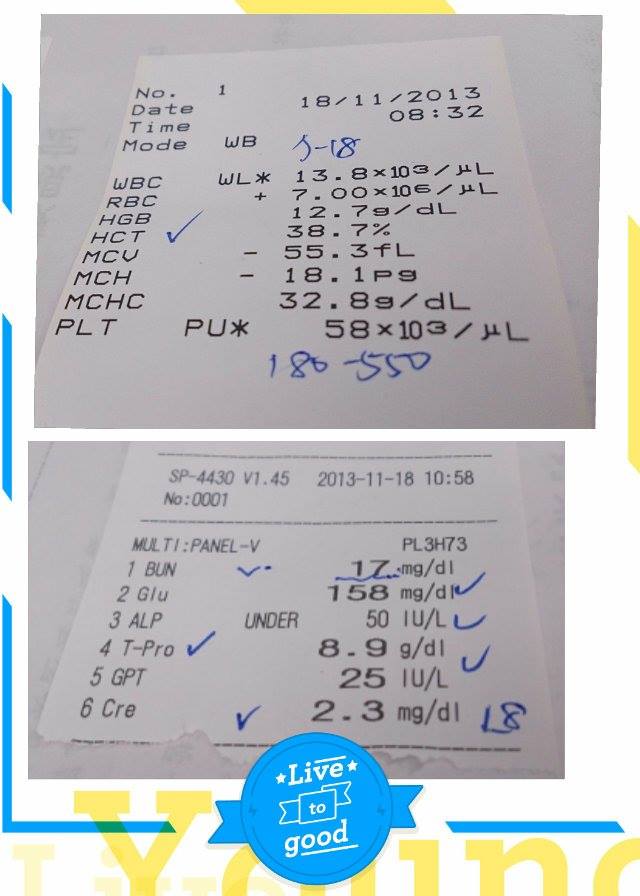 No. 1
Date 18/11/2013
Time 08:32
Mode WB 5-18
WBC WL* 13.8×10³/μL
RBC + 7.00×10⁶/μL
HGB 12.7g/dL
HCT 38.7%
MCV - 55.3fL
MCH - 18.1pg
MCHC 32.8g/dL
PLT PU* 58×10³/μL
180-550
SP-4430 V1.45 2013-11-18 10:58
No:0001
MULTI:PANEL-V PL3H73
1 BUN 17 mg/dl
2 Glu 158 mg/dl
3 ALP UNDER 50 IU/L
4 T-Pro 8.9 g/dl
5 GPT 25 IU/L
6 Cre 2.3 mg/dl 1.8
Live
to
good
Young
Live